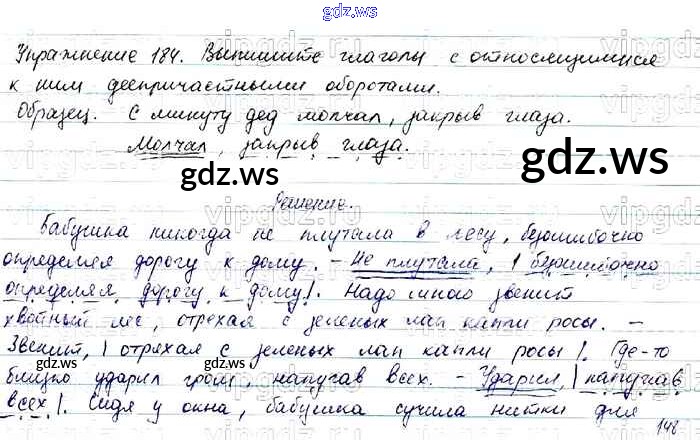 gdz.ws
Упражнение 184. Выпишите глаголы с относящимися
к ним деепричастными оборотами.
Образец. С минуту дед молчал, закрыв глаза.
Молчал, закрыв глаза.
gdz.ws
gdz.ws
Решение.
Бабушка никогда не плутала в лесу, безошибочно
определяя дорогу к дому. - Не плутала, | безошибочно
определяя дорогу к дому|. Надо мною звенит
хвойный лес, отряхая с зеленых лап капли росы. -
Звенит, | отряхая с зеленых лап капли росы |. Где-то
близко ударил гром, напугав всех. - Ударил, | напугав
всех |. Сидя у окна, бабушка сучила нитки для
gdz.ws
gdz.ws
148